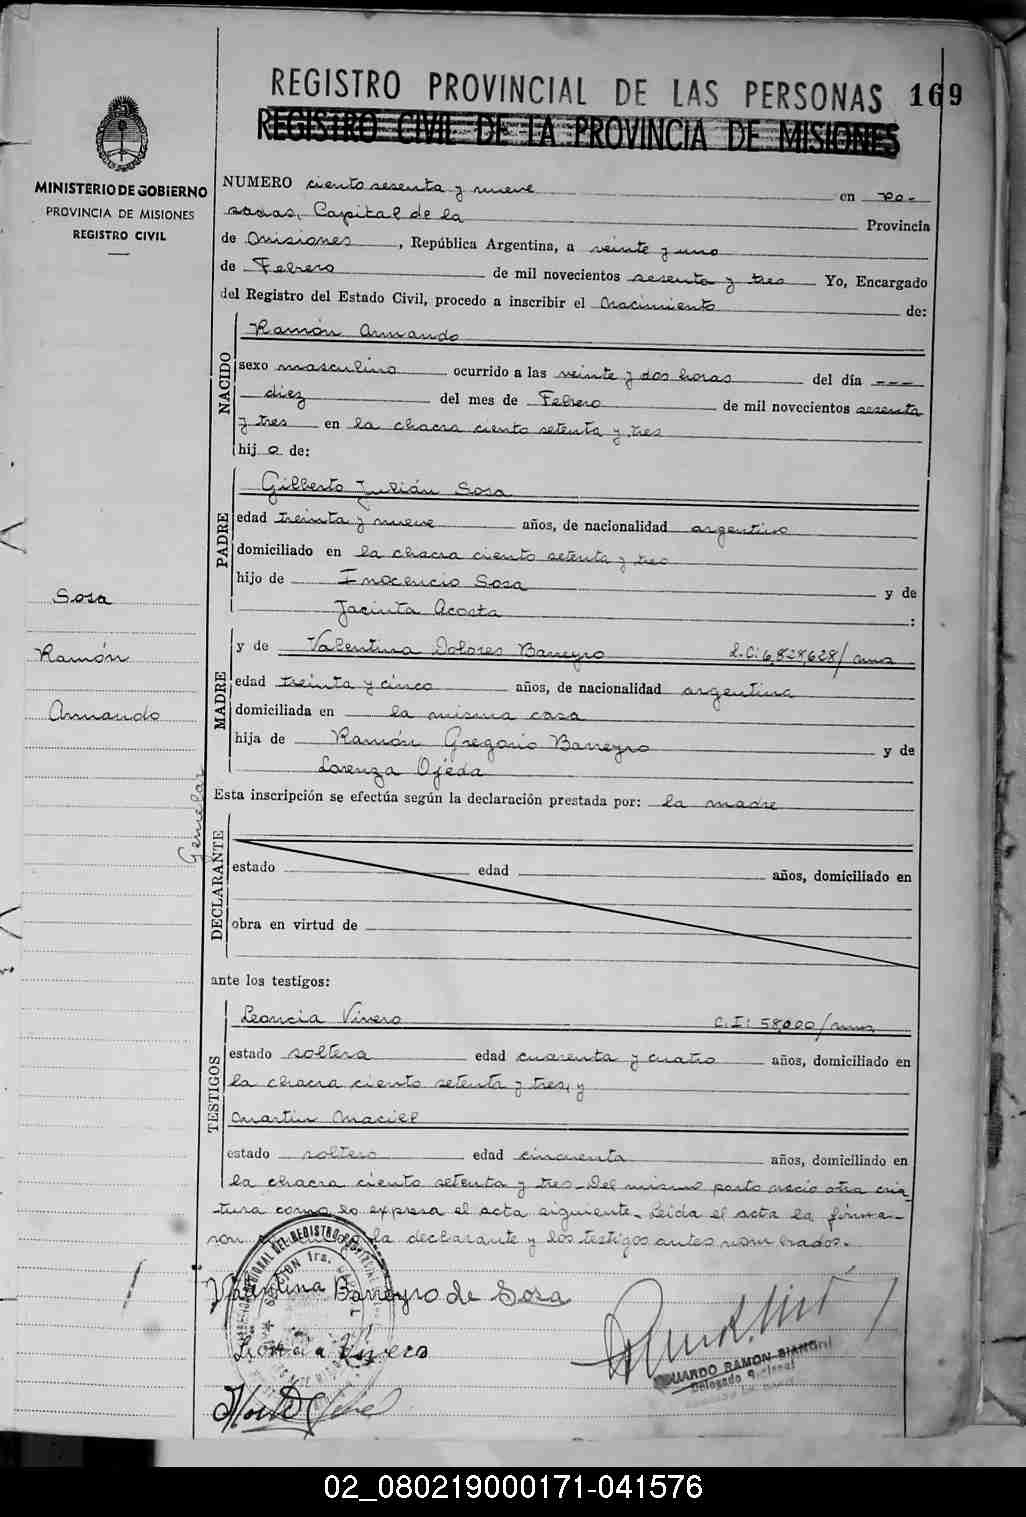 REGISTRO PROVINCIAL DE LAS PERSONAS 169
REGISTRO CIVIL DE LA PROVINCIA DE MISIONES
MINISTERIO DE GOBIERNO
PROVINCIA DE MISIONES
REGISTRO CIVIL
NUMERO ciento sesenta y nueve en Po-
sadas, Capital de la Provincia
de Misiones, República Argentina, a veinte y uno
de Febrero de mil novecientos sesenta y tres Yo, Encargado
del Registro del Estado Civil, procedo a inscribir el nacimiento de:
NACIDO
Ramón Armando
sexo masculino ocurrido a las veinte y dos horas del día ---
diez del mes de Febrero de mil novecientos sesenta
y tres en la chacra ciento setenta y tres
hijo de:
PADRE
Gilberto Julián Sosa
edad treinta y nueve años, de nacionalidad argentino
domiciliado en la chacra ciento setenta y tres
hijo de Inocencio Sosa y de
Jacinta Acosta :
MADRE
y de Valentina Dolores Barreyro L.C: 6,828,628/mnes
edad treinta y cinco años, de nacionalidad argentina
domiciliada en la misma casa
hija de Ramón Gregorio Barreyro y de
Lorenza Ojeda
Sosa
Ramón
Armando
Gemelar
Esta inscripción se efectúa según la declaración prestada por: la madre
DECLARANTE
estado edad años, domiciliado en
obra en virtud de
ante los testigos:
TESTIGOS
Leoncia Vivero C.I: 58,000/mnes
estado soltera edad cuarenta y cuatro años, domiciliado en
la chacra ciento setenta y tres, y
Martin Maciel
estado soltero edad cincuenta años, domiciliado en
la chacra ciento setenta y tres. Del mismo parto nació otra cria-
tura como lo expresa el acta siguiente. Leída el acta la firma-
ron la declarante y los testigos antes nombrados.
Valentina Barreyro de Sosa
Leoncia Vivero
EDUARDO RAMON BIANCHI
Delegado Regional
02_080219000171-041576